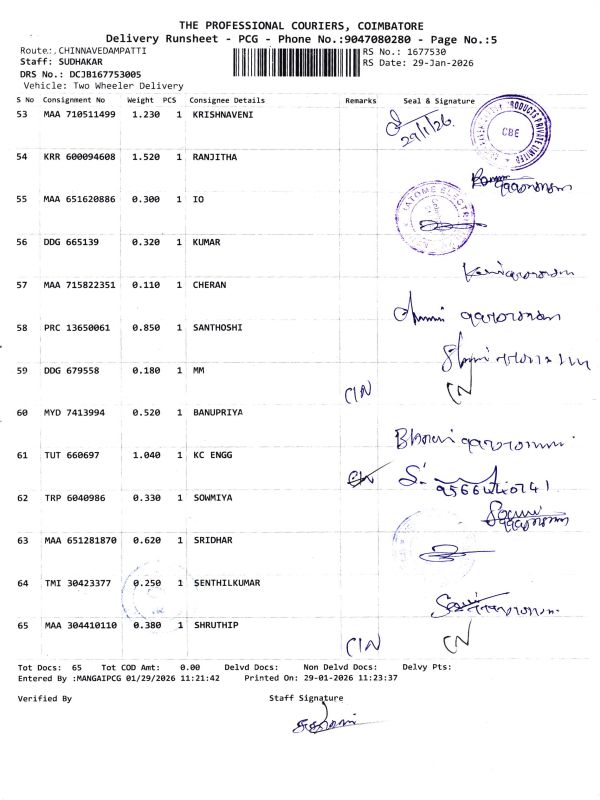 THE PROFESSIONAL COURIERS, COIMBATORE
Delivery Runsheet - PCG - Phone No.:9047080280 - Page No.:5
Route:, CHINNAVEDAMPATTI RS No.: 1677530
Staff: SUDHAKAR RS Date: 29-Jan-2026
DRS No.: DCJB167753005
Vehicle: Two Wheeler Delivery
S No Consignment No Weight PCS Consignee Details Remarks Seal & Signature
53 MAA 710511499 1.230 1 KRISHNAVENI 29/1/26
PRODUCTS PRIVATE LIMITED CBE
54 KRR 600094608 1.520 1 RANJITHA
55 MAA 651620886 0.300 1 IO
56 DDG 665139 0.320 1 KUMAR
57 MAA 715822351 0.110 1 CHERAN
58 PRC 13650061 0.850 1 SANTHOSHI
59 DDG 679558 0.180 1 MM CIN CN
60 MYD 7413994 0.520 1 BANUPRIYA
61 TUT 660697 1.040 1 KC ENGG
62 TRP 6040986 0.330 1 SOWMIYA
63 MAA 651281870 0.620 1 SRIDHAR
64 TMI 30423377 0.250 1 SENTHILKUMAR
65 MAA 304410110 0.380 1 SHRUTHIP CIN CN
Tot Docs: 65 Tot COD Amt: 0.00 Delvd Docs: Non Delvd Docs: Delvy Pts:
Entered By :MANGAIPCG 01/29/2026 11:21:42 Printed On: 29-01-2026 11:23:37
Verified By Staff Signature